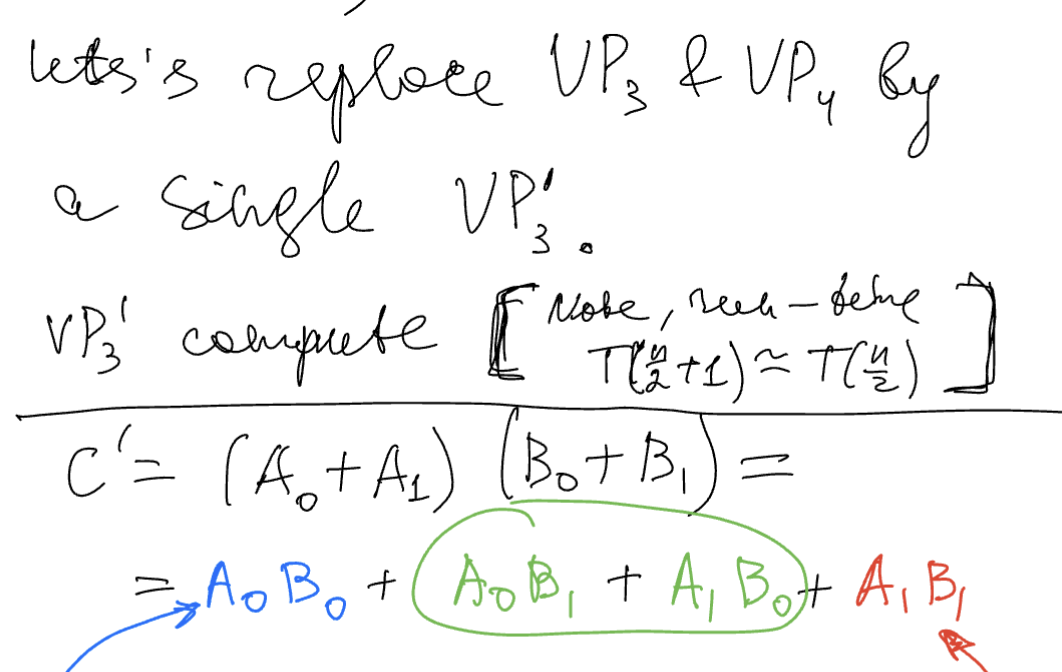 lets's replace VP₃ & VP₄ by
a single VP₃'.
VP₃' compute [Note, run-time
T(n/2+1) ≃ T(n/2)]
C' = (A₀+A₁) (B₀+B₁) =
= A₀B₀ + A₀B₁ + A₁B₀ + A₁B₁